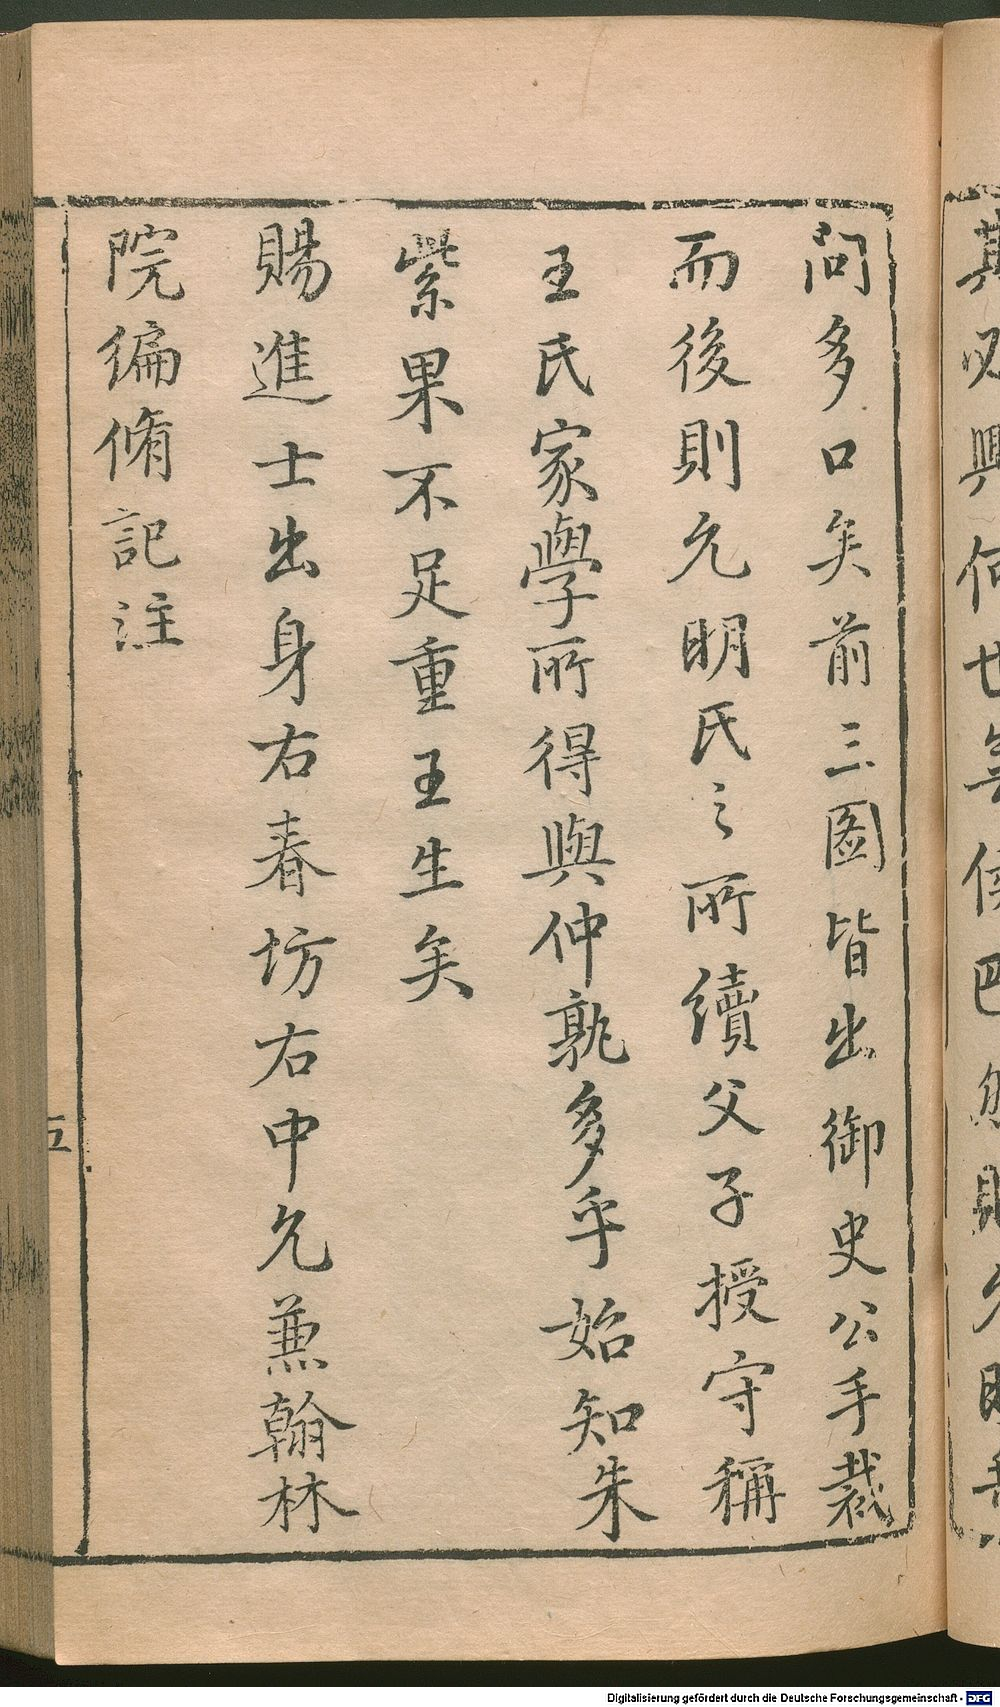 問多口矣前三圖皆出御史公手裁
而後則允明氏之所續父子授守稱
王氏家學所得與仲孰多乎始知朱
紫果不足重王生矣
賜進士出身右春坊右中允兼翰林
院編脩記注
五
Digitalisierung gefördert durch die Deutsche Forschungsgemeinschaft - DFG